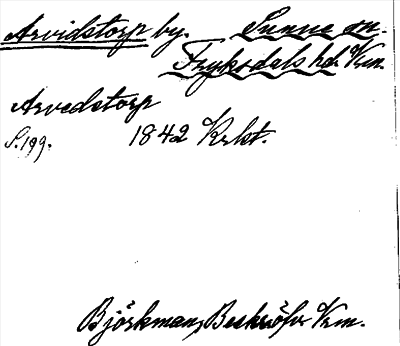 Arvidstorp by. Sunne sn.
Fryksdals hd. Vrm.
Arvedstorp
S. 199. 1842 Krkt.
Björkman, Beskrifn Vrm.